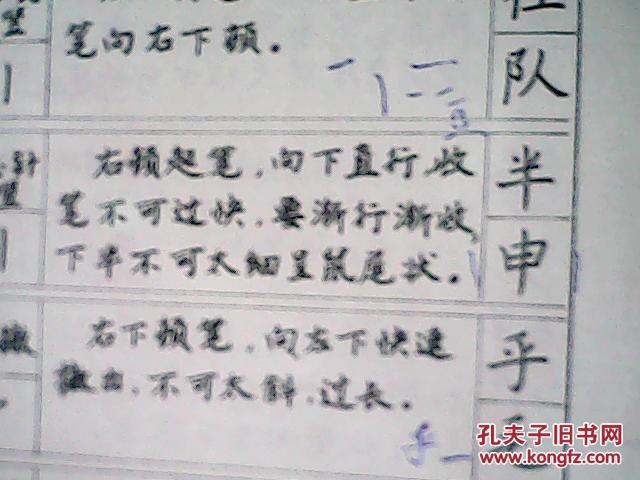 笔向右下顿。
队
右顿起笔,向下直行,收
笔不可过快,要渐行渐收,
下半不可太细呈鼠尾状。
半
申
右下顿笔,向左下快速
撇出,不可太斜、过长。
乎
孔夫子旧书网
KONGFZ.COM